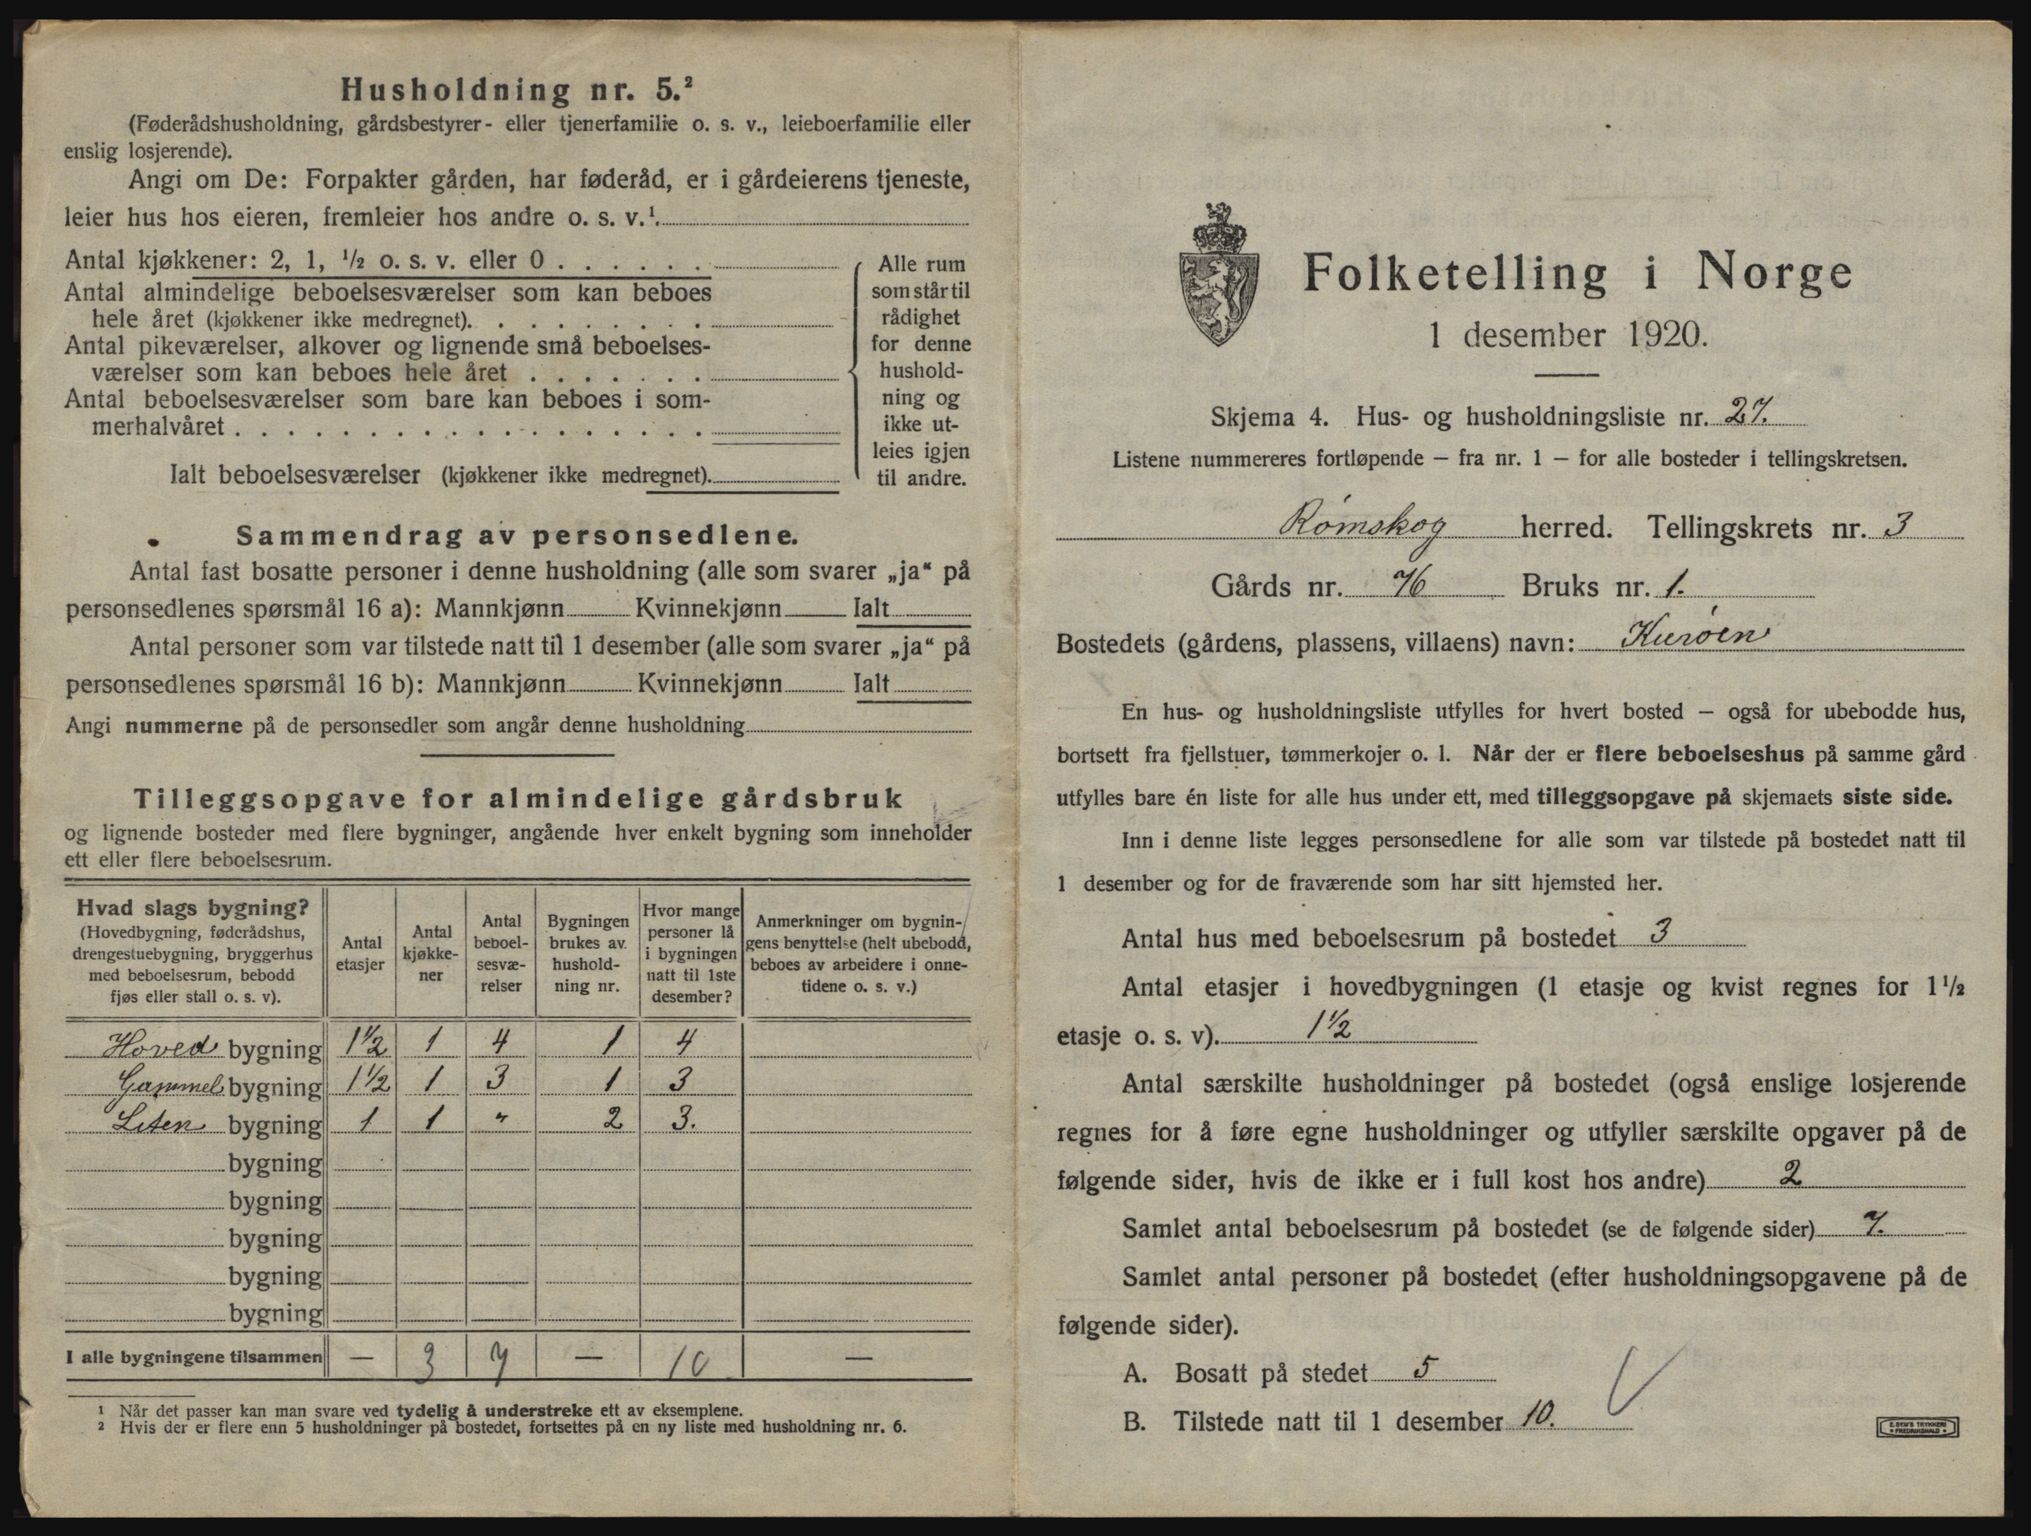 Husholdning nr. 5.²
(Føderådshusholdning, gårdsbestyrer- eller tjenerfamilie o. s. v., leieboerfamilie eller
enslig losjerende).
Angi om De: Forpakter gården, har føderåd, er i gårdeierens tjeneste,
leier hus hos eieren, fremleier hos andre o. s. v.¹.
Antal kjøkkener: 2, 1, ½ o. s. v. eller 0 . . . . . .
Antal almindelige beboelsesværelser som kan beboes
hele året (kjøkkener ikke medregnet). . . . . . . . .
Antal pikeværelser, alkover og lignende små beboelses-
værelser som kan beboes hele året . . . . . . .
Antal beboelsesværelser som bare kan beboes i som-
merhalvåret . . . . . . . . . . . . . . . . . .
Ialt beboelsesværelser (kjøkkener ikke medregnet).
Alle rum
som står til
rådighet
for denne
hushold-
ning og
ikke ut-
leies igjen
til andre.
Sammendrag av personsedlene.
Antal fast bosatte personer i denne husholdning (alle som svarer „ja“ på
personsedlenes spørsmål 16 a): Mannkjønn Kvinnekjønn Ialt
Antal personer som var tilstede natt til 1 desember (alle som svarer „ja“ på
personsedlenes spørsmål 16 b): Mannkjønn Kvinnekjønn Ialt
Angi nummerne på de personsedler som angår denne husholdning
Tilleggsopgave for almindelige gårdsbruk
og lignende bosteder med flere bygninger, angående hver enkelt bygning som inneholder
ett eller flere beboelsesrum.
Hvad slags bygning?
(Hovedbygning, føderådshus,
drengestuebygning, bryggerhus
med beboelsesrum, bebodd
fjøs eller stall o. s. v).
Antal
etasjer
Antal
kjøkke-
ner
Antal
beboel-
sesvæ-
relser
Bygningen
brukes av
hushold-
ning nr.
Hvor mange
personer lå
i bygningen
natt til 1ste
desember?
Anmerkninger om bygnin-
gens benyttelse (helt ubebodd,
beboes av arbeidere i onne-
tidene o. s. v.)
Hoved bygning 1½ 1 4 1 4
Gammel bygning 1½ 1 3 1 3
Liten bygning 1 1 " 2 3.
bygning
bygning
bygning
bygning
bygning
I alle bygningene tilsammen — 3 7 — 10 —
¹ Når det passer kan man svare ved tydelig å understreke ett av eksemplene.
² Hvis der er flere enn 5 husholdninger på bostedet, fortsettes på en ny liste med husholdning nr. 6.
Folketelling i Norge
1 desember 1920.
Skjema 4. Hus- og husholdningsliste nr. 27.
Listene nummereres fortløpende – fra nr. 1 – for alle bosteder i tellingskretsen.
Rømskog herred. Tellingskrets nr. 3
Gårds nr. 76 Bruks nr. 1.
Bostedets (gårdens, plassens, villaens) navn: Kurøen
En hus- og husholdningsliste utfylles for hvert bosted – også for ubebodde hus,
bortsett fra fjellstuer, tømmerkojer o. l. Når der er flere beboelseshus på samme gård
utfylles bare én liste for alle hus under ett, med tilleggsopgave på skjemaets siste side.
Inn i denne liste legges personsedlene for alle som var tilstede på bostedet natt til
1 desember og for de fraværende som har sitt hjemsted her.
Antal hus med beboelsesrum på bostedet 3
Antal etasjer i hovedbygningen (1 etasje og kvist regnes for 1½
etasje o. s. v). 1½
Antal særskilte husholdninger på bostedet (også enslige losjerende
regnes for å føre egne husholdninger og utfyller særskilte opgaver på de
følgende sider, hvis de ikke er i full kost hos andre) 2
Samlet antal beboelsesrum på bostedet (se de følgende sider) 7.
Samlet antal personer på bostedet (efter husholdningsopgavene på de
følgende sider).
A. Bosatt på stedet 5
B. Tilstede natt til 1 desember 10.
E. SEM'S TRYKKERI
* FREDRIKSHALD *